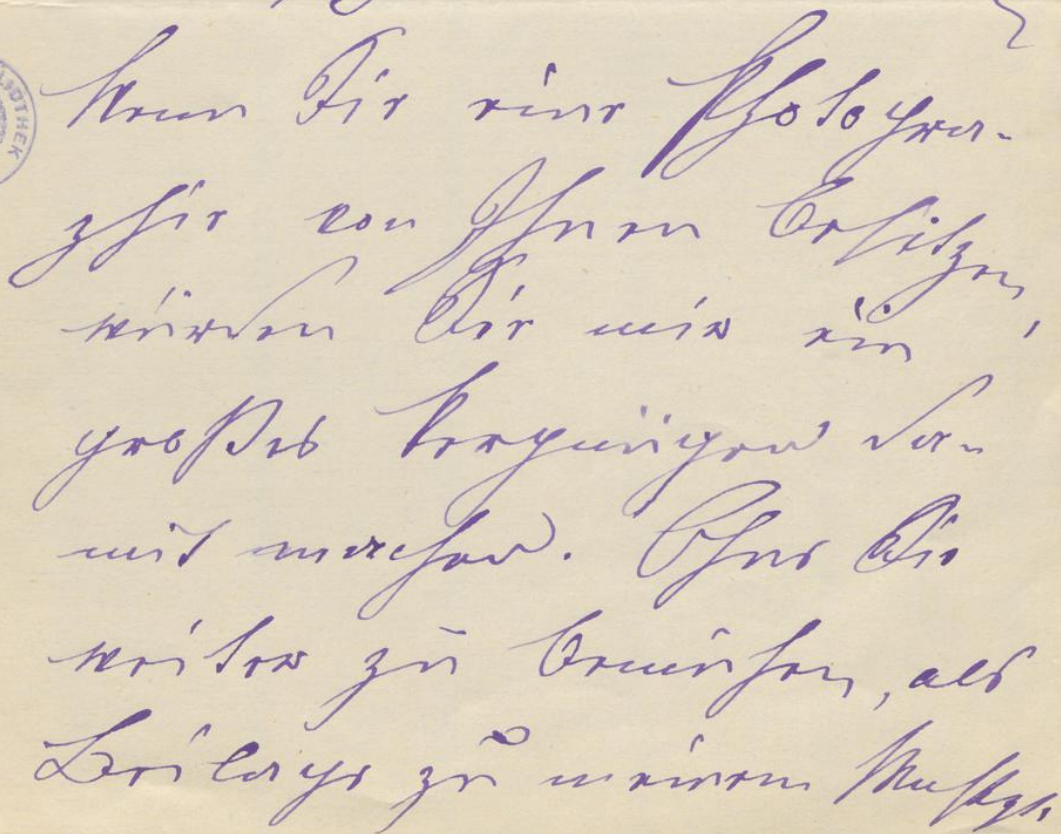 Wenn Sie eine Photogra-
phie von Ihnen besitzen,
würden Sie mir ein
großes Vergnügen da-
mit machen. Ohne Sie
weiter zu bemühen, als
Beilage zu meinem